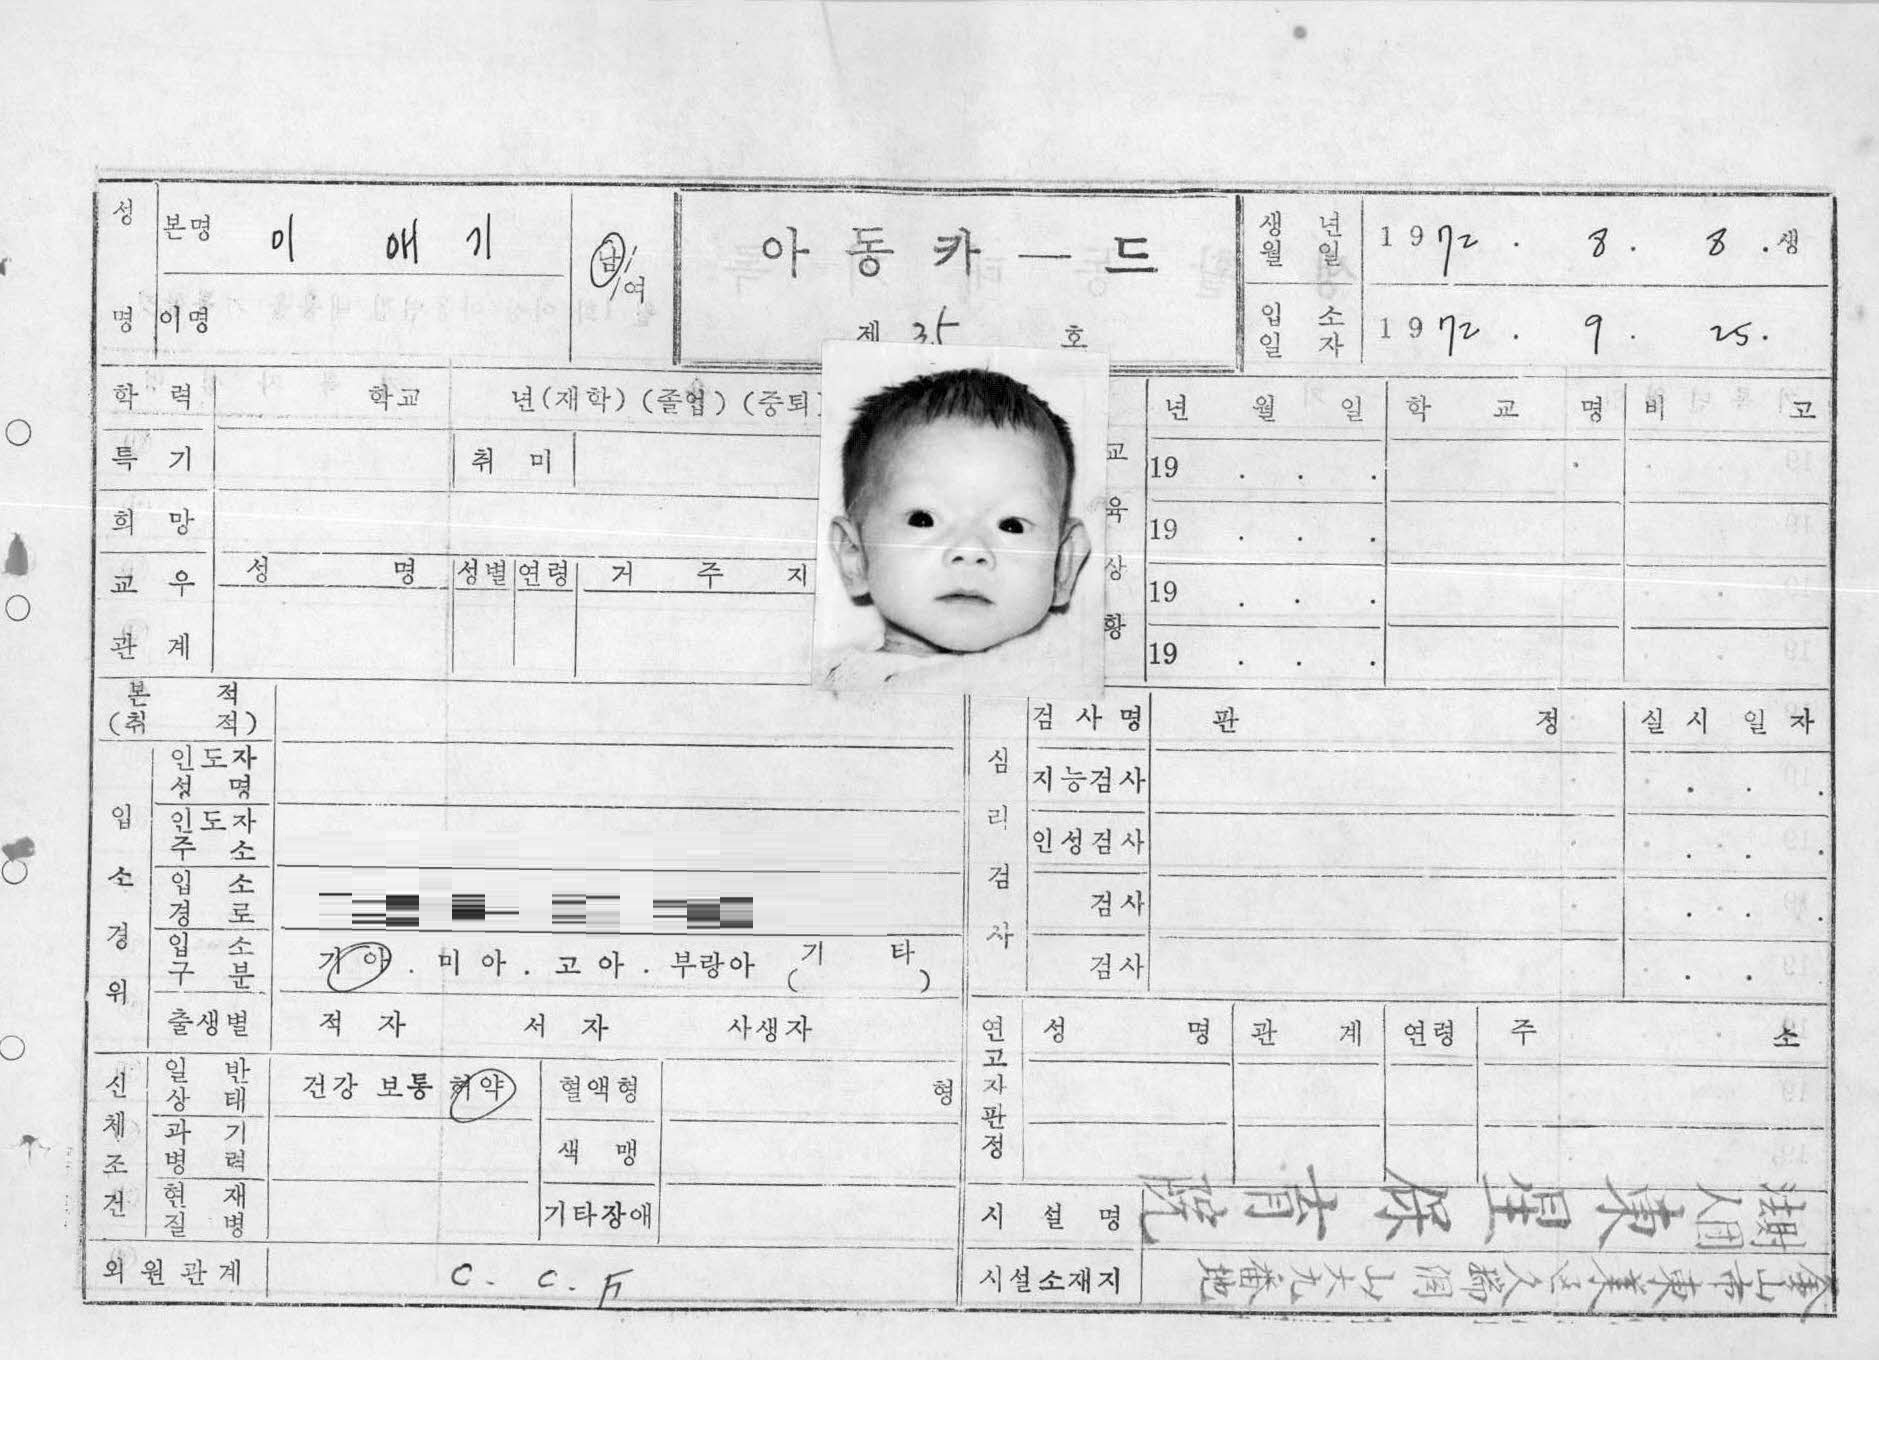 성명 본명 이 애 기 남/여
이명
아 동 카 ― 드
제 35 호
생년월일 1972. 8. 8. 생
입소일자 1972. 9. 25.
학력 학교 년(재학)(졸업)(중퇴)
특기 취미
희망
교우관계 성명 성별 연령 거주지
교육상황 년월일 학교명 비고
19 . . .
19 . . .
19 . . .
19 . . .
본적
(취적)
입소경위
인도자성명
인도자주소
입소경로
입소구분 기아. 미아. 고아. 부랑아 (기타)
출생별 적자 서자 사생자
심리검사 검사명 판정 실시일자
지능검사 . . .
인성검사 . . .
검사 . . .
검사 . .
신체조건
일반상태 건강 보통 허약 혈액형 형
과기병력 색맹
현재질병 기타장애
연고자판정 성명 관계 연령 주소
외원관계 C. C. F
시설명
시설소재지